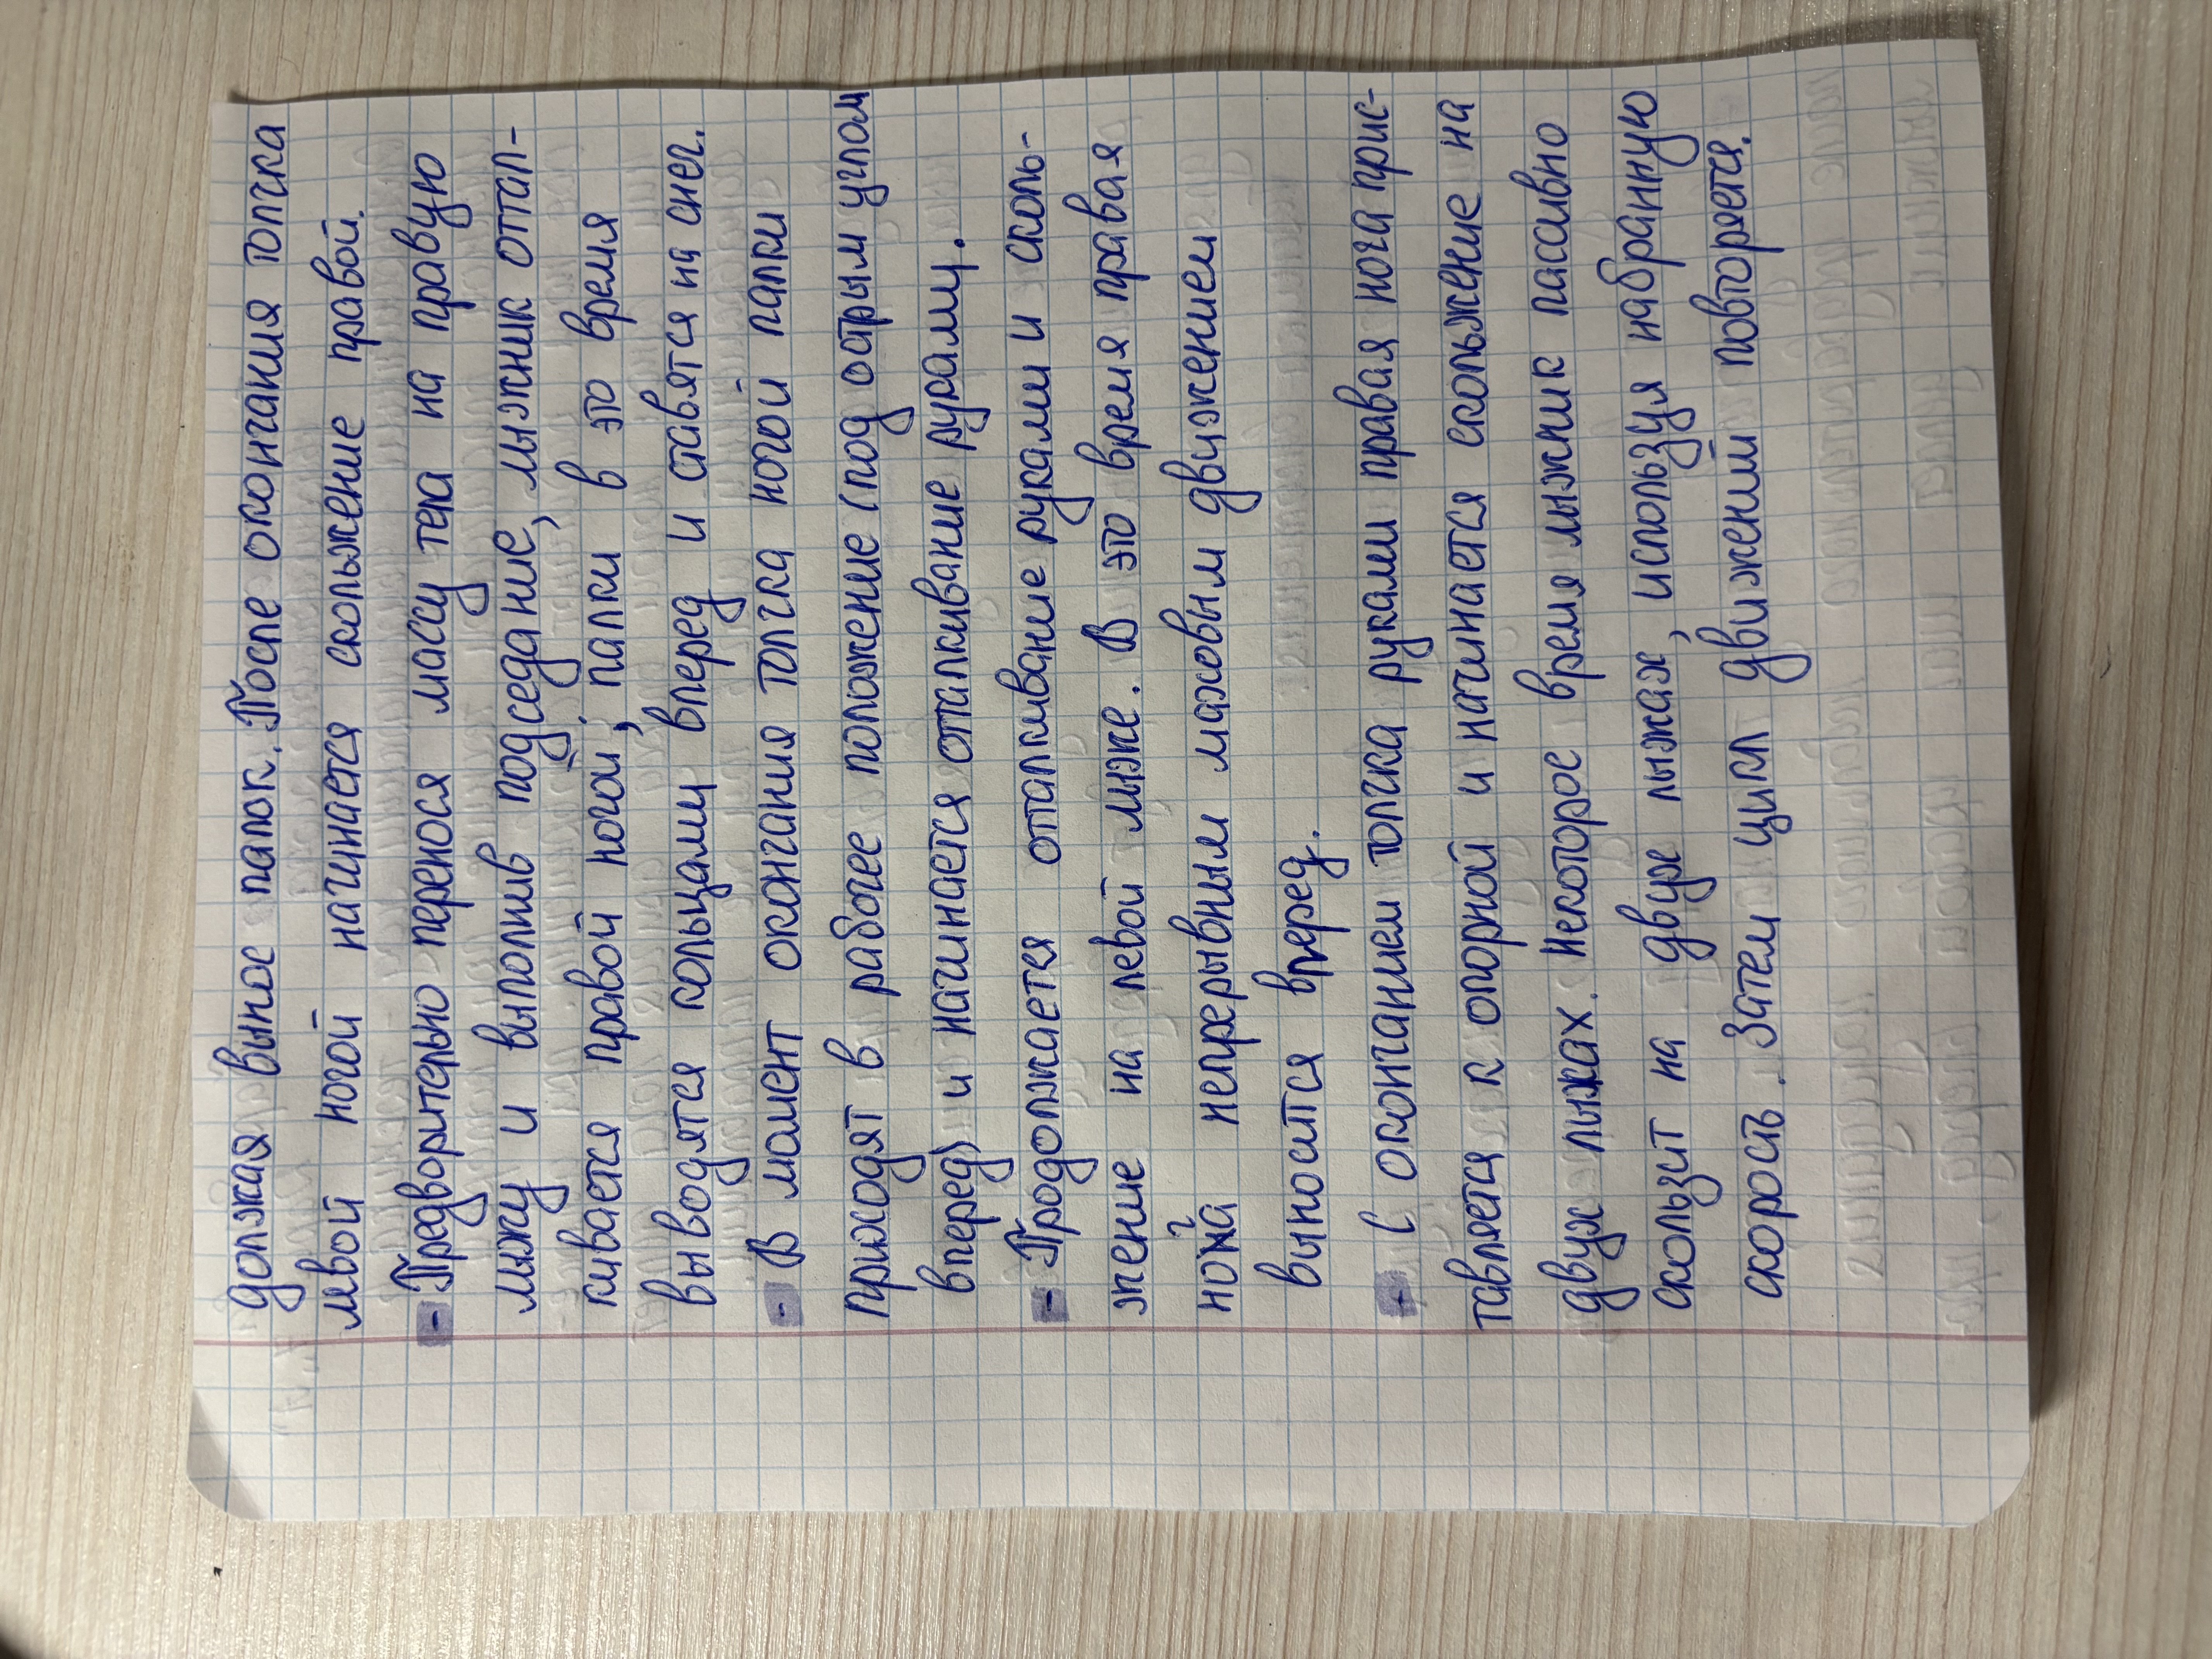 должая вынос палок. После окончания толчка
мвой ногой начинается скольжение правой.
- Предворительно перенося массу тела на правую
лыжу и выполнив подседание, лыжник оттал-
кивается правой ногой, палки в это время
выводятся кольцами вперед и ставятся на снег.
- В момент окончания толчка ногой палки
приходят в рабочее положение (под острым углом
вперед) и начинается отталкивание рурами.
- Продолжается отталкивание руками и сколь-
жение на левой лыже. В это время правая
нога непрерывным маховым движением
выносится вперед.
- С окончанием толчка руками правая нога прис-
тавляется к опорной и начинается скольжение на
двух лыжах. Некоторое время лыжник пассивно
скользит на двух лыжах, используя набранную
скорость. Затем цикл движений повторяется.